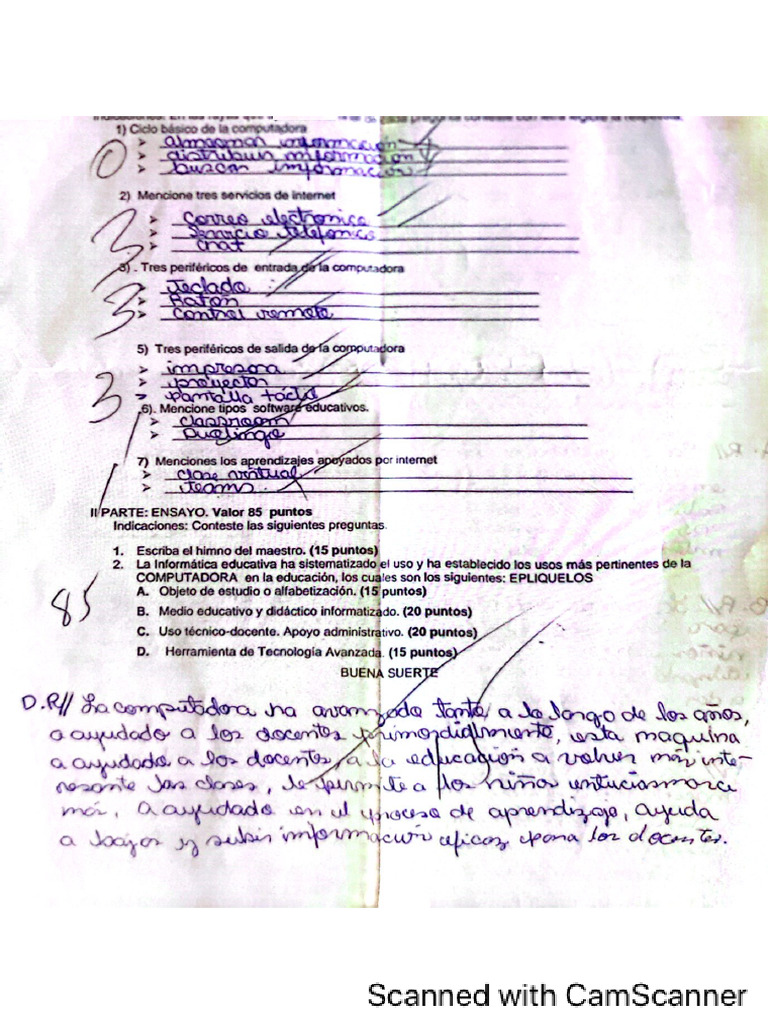 1) Ciclo básico de la computadora
0
➢ almacenar información
➢ distribuir información
➢ buscar información
2) Mencione tres servicios de internet
3
➢ Correo electronico
➢ Servicio telefonico
➢ chat
3) . Tres periféricos de entrada de la computadora
3
➢ Teclado
➢ Raton
➢ Control remoto
5) Tres periféricos de salida de la computadora
3
➢ impresora
➢ proyector
➢ pantalla táctil
6). Mencione tipos software educativos.
➢ classroom
➢ Duolingo
7) Menciones los aprendizajes apoyados por internet
➢ clase virtual
➢ teams.
II PARTE: ENSAYO. Valor 85 puntos
Indicaciones: Conteste las siguientes preguntas.
1. Escriba el himno del maestro. (15 puntos)
2. La Informática educativa ha sistematizado el uso y ha establecido los usos más pertinentes de la
COMPUTADORA en la educación, los cuales son los siguientes: EPLIQUELOS
85
A. Objeto de estudio o alfabetización. (15 puntos)
B. Medio educativo y didáctico informatizado. (20 puntos)
C. Uso técnico-docente. Apoyo administrativo. (20 puntos)
D. Herramienta de Tecnología Avanzada. (15 puntos)
BUENA SUERTE
D.R// La computadora ha avanzado tanto a lo largo de los años,
a ayudado a los docentes primordialmente, esta maquina
a ayudado a los docentes, a la educación a volver más inte-
resante las clases, le permite a los niños
más, a ayudado en el proceso de aprendizaje, ayuda
a bajar y subir información eficaz para los docentes.
Scanned with CamScanner